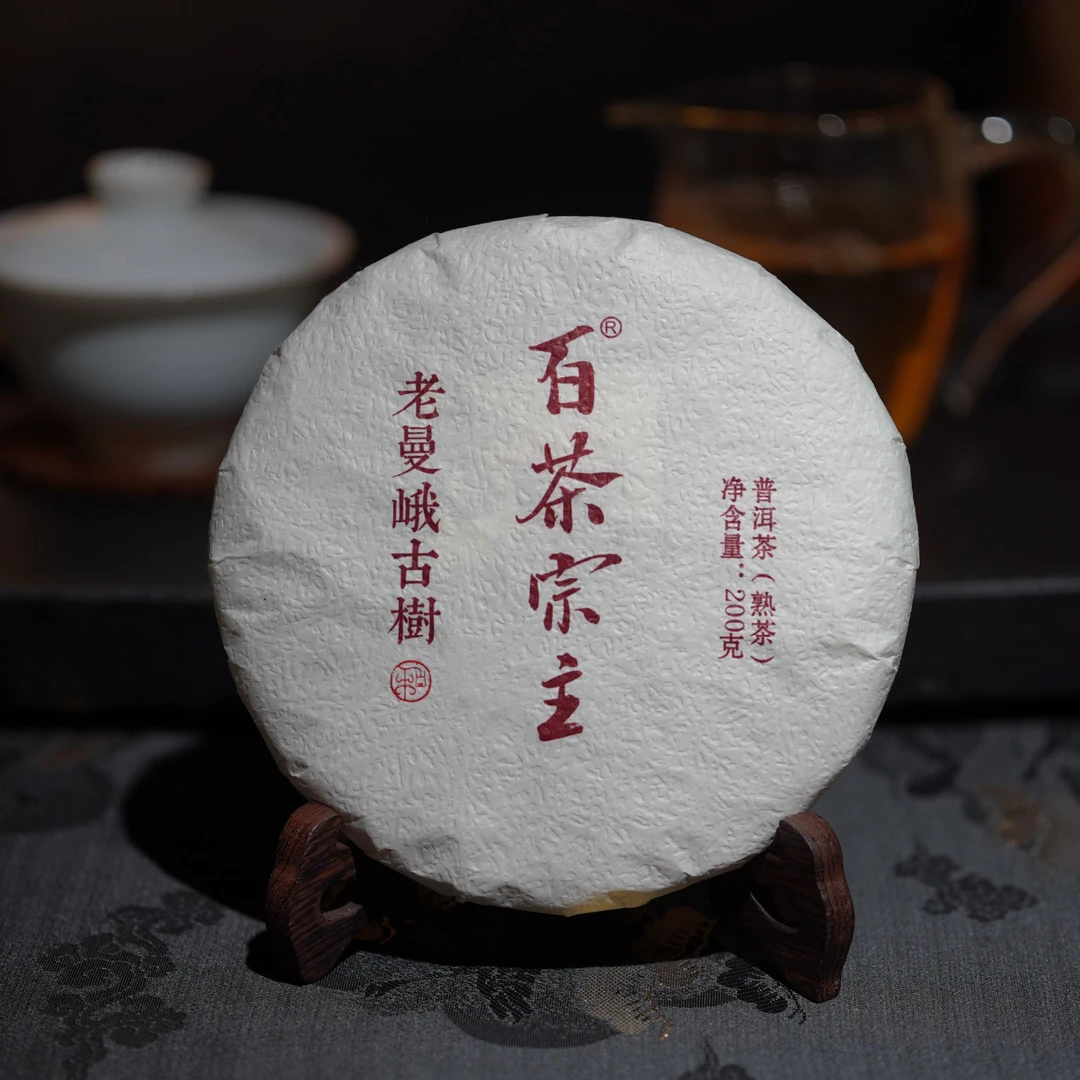 百茶宗主®
老曼峨古樹
普洱茶(熟茶)
净含量:200克